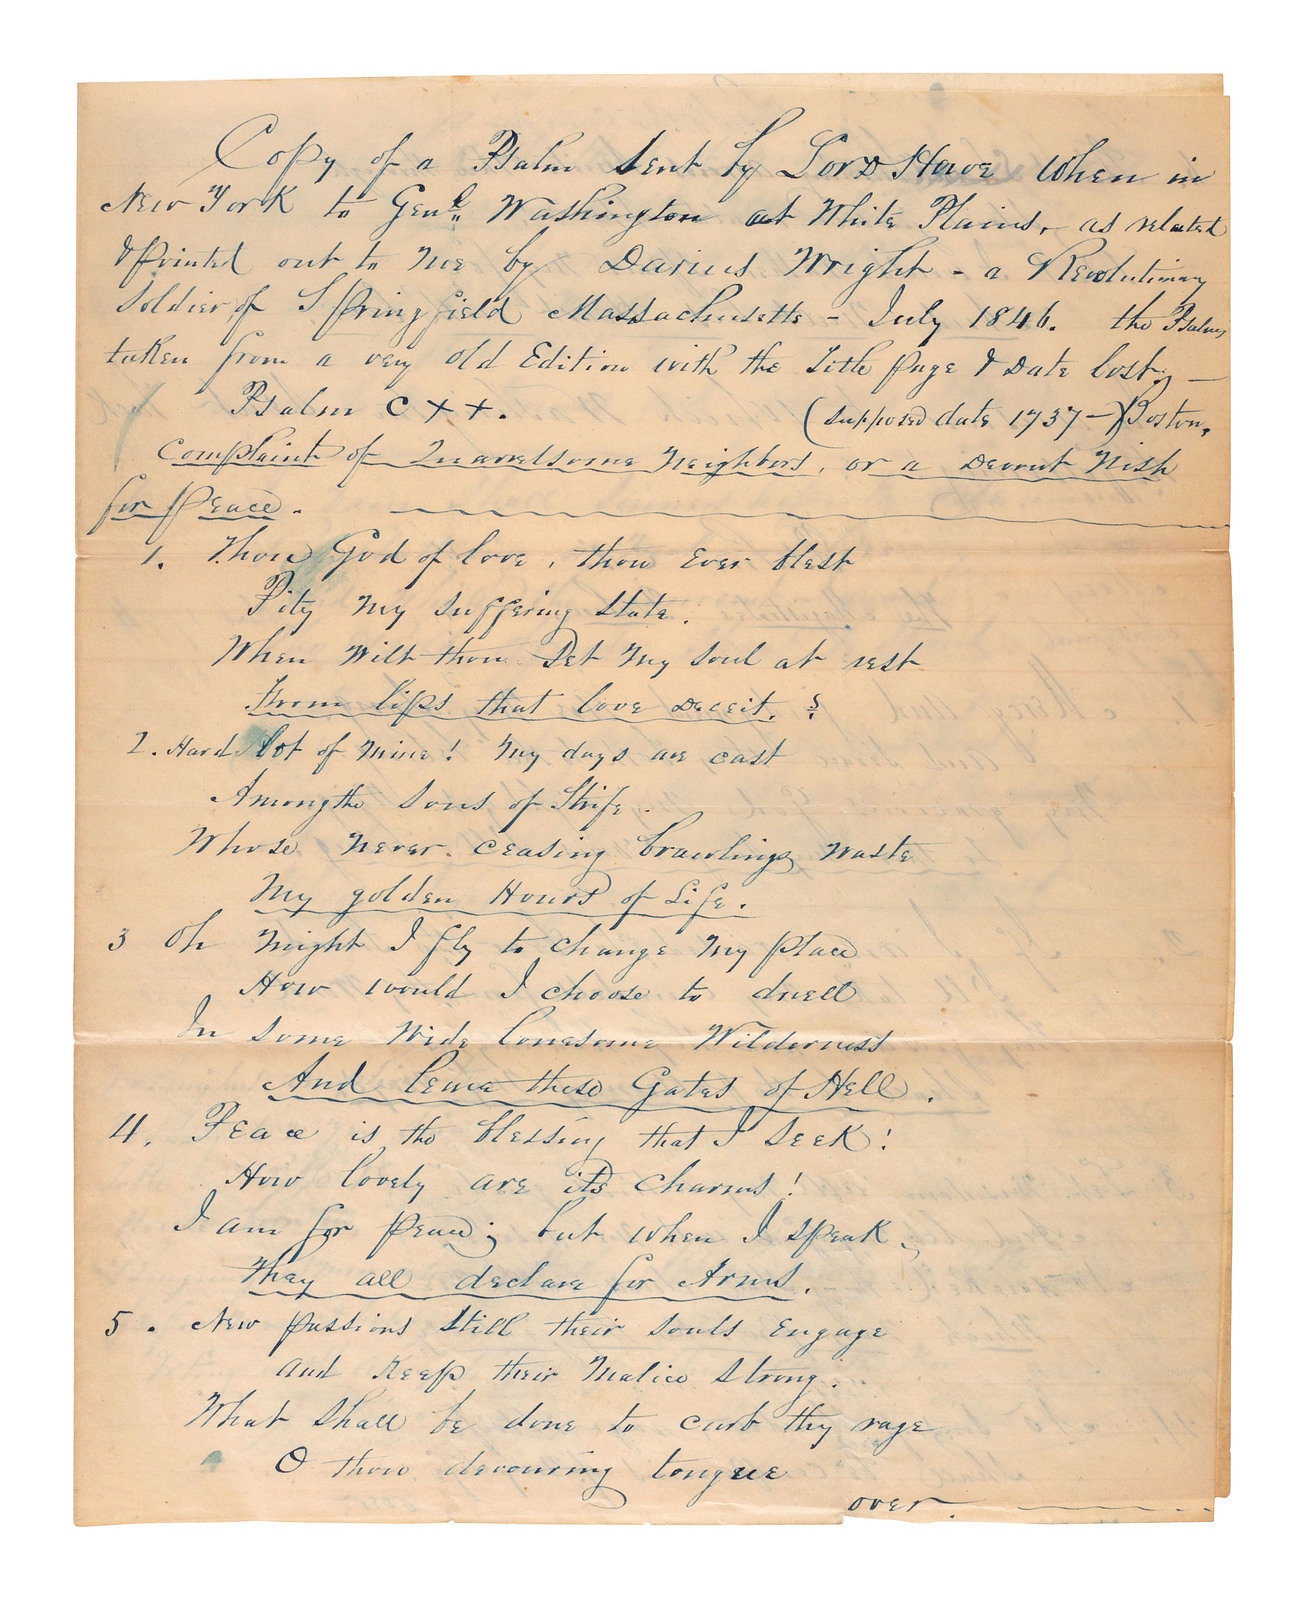 Copy of a Psalm Sent by Lord Howe When in
New York to Genl. Washington at White Plains, as related
& Pointed out to Me by Darius Wright - a Revolutinary
Soldier of Springfield Massachusetts - July 1846. the Psalms
taken from a very old Edition with the Title page & Date lost. -
Psalm C++. (supposed date 1737 -) Boston,
Complaint of Quarrelsome Neighbors, or a Devout Wish
for Peace.
1. Thou God of love, thou Ever blest
Pity My Suffering State.
When Wilt thou Set My Soul at rest
From lips that love Deceit. ?
2. Hard lot of Mine! My days are cast
Among the Sons of Strife.
Whose Never. Ceasing brawlings Waste
My golden Hours of Life.
3 Oh Might I fly to change My Place
How would I choose to dwell
In Some Wide lonesome Wilderness
And leave these Gates of Hell.
4. Peace is the blessing that I Seek!
How lovely are its Charms!
I am for Peace; but when I Speak,
They all declare for Arms.
5. New passions Still their Souls Engage
and Keep their Malice Strong.
What Shall be done to curb thy rage
O thou devouring tongue
over.